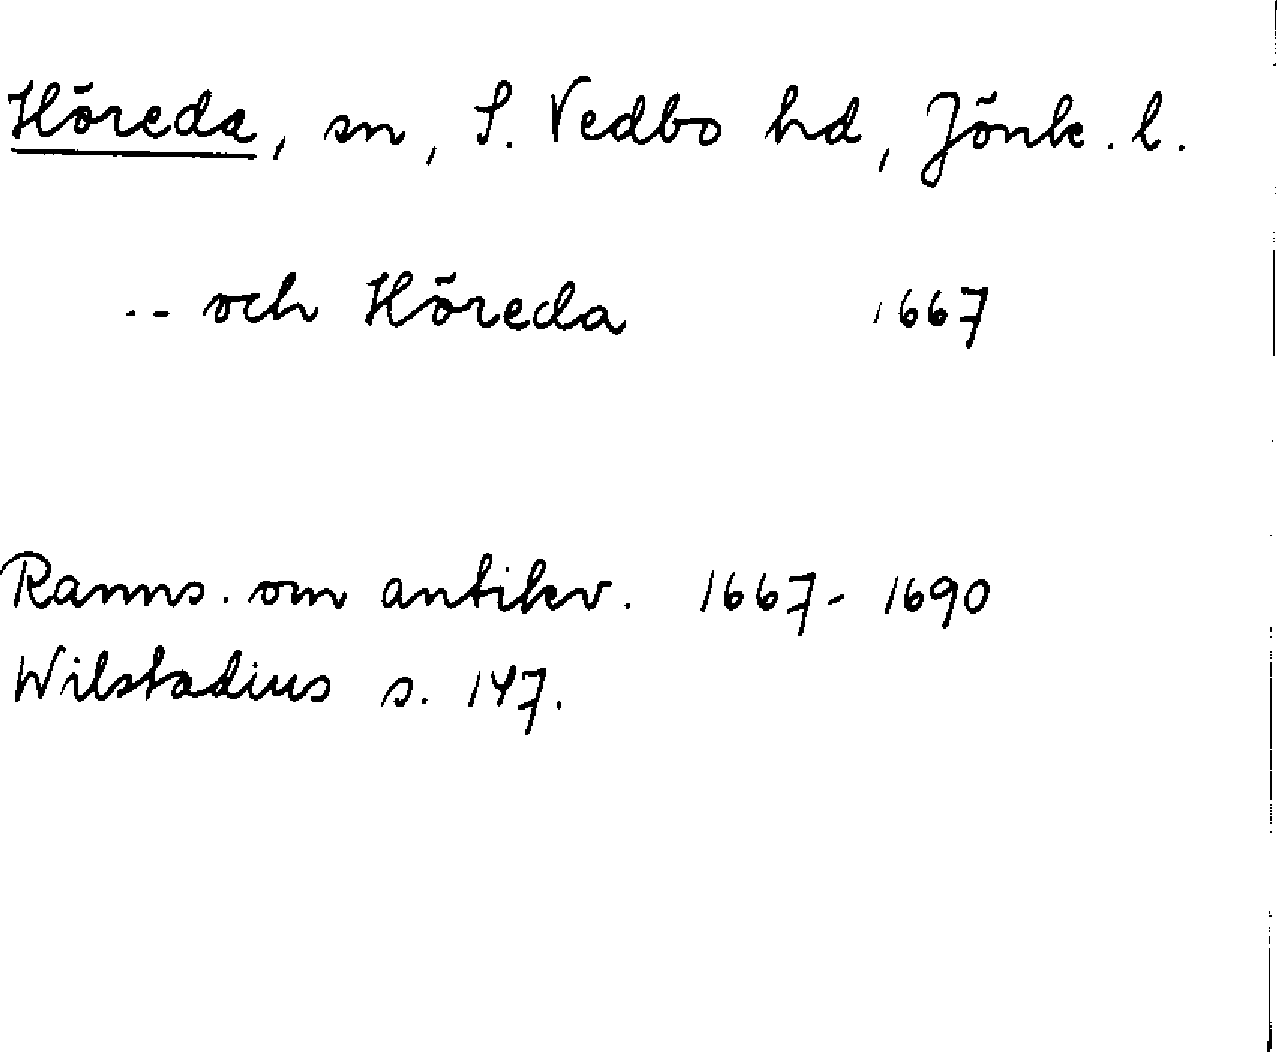 Höreda, sn, S. Vedbo hd, Jönk. l.
-- och Höreda 1667
Ranns. om antikv. 1667- 1690
Wilstadius s. 147.